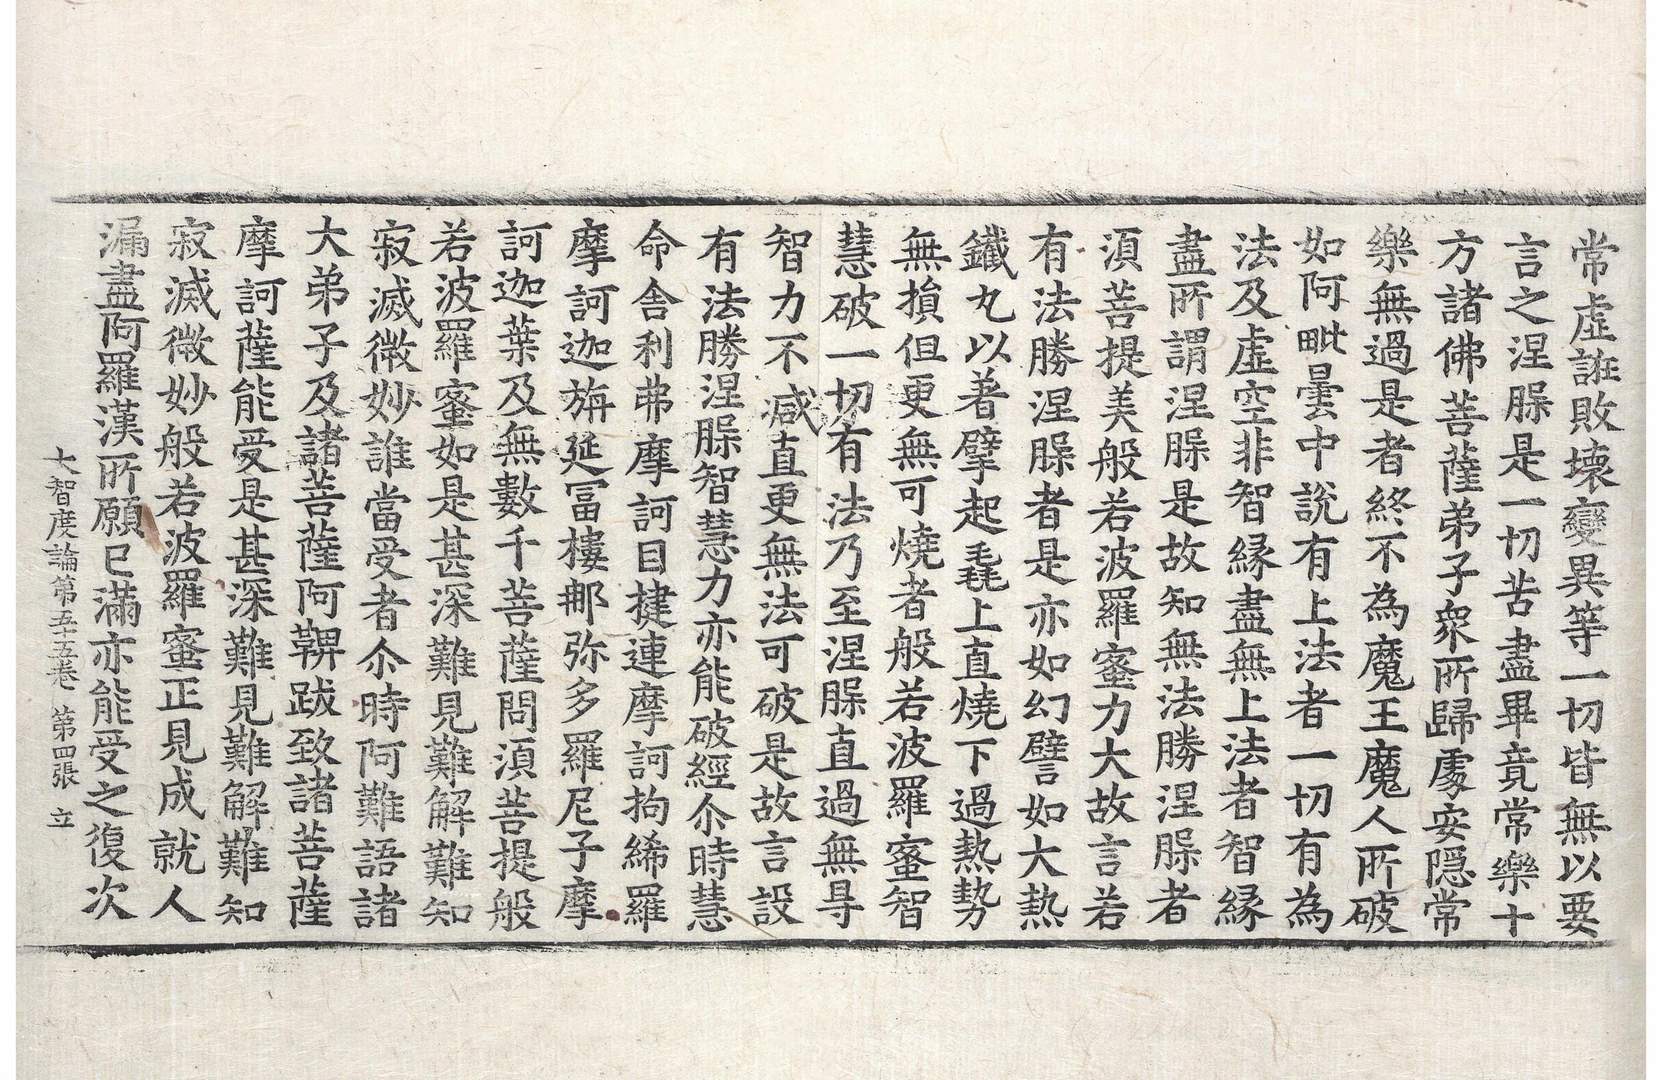 常虛誑敗壞變異等一切皆無以要
言之涅槃是一切苦盡畢竟常樂十
方諸佛菩薩弟子衆所歸處安隱常
樂無過是者終不為魔王魔人所破
如阿毗曇中說有上法者一切有為
法及虛空非智緣盡無上法者智緣
盡所謂涅槃是故知無法勝涅槃者
湏菩提美般若波羅蜜力大故言若
有法勝涅槃者是亦如幻譬如大熱
鐵丸以著擘起毳上直燒下過熱勢
無損但更無可燒者般若波羅蜜智
慧破一切有法乃至涅槃直過無㝵
智力不减直更無法可破是故言設
有法勝涅槃智慧力亦能破經尒時慧
命舍利弗摩訶目揵連摩訶拘絺羅
摩訶迦旃延冨樓那弥多羅尼子摩
訶迦葉及無數千菩薩問湏菩提般
若波羅蜜如是甚深難見難解難知
寂滅微妙誰當受者尒時阿難語諸
大弟子及諸菩薩阿鞞跋致諸菩薩
摩訶薩能受是甚深難見難解難知
寂滅微妙般若波羅蜜正見成就人
漏盡阿羅漢所願已滿亦能受之復次
大智度論第五十五卷 第四張 立